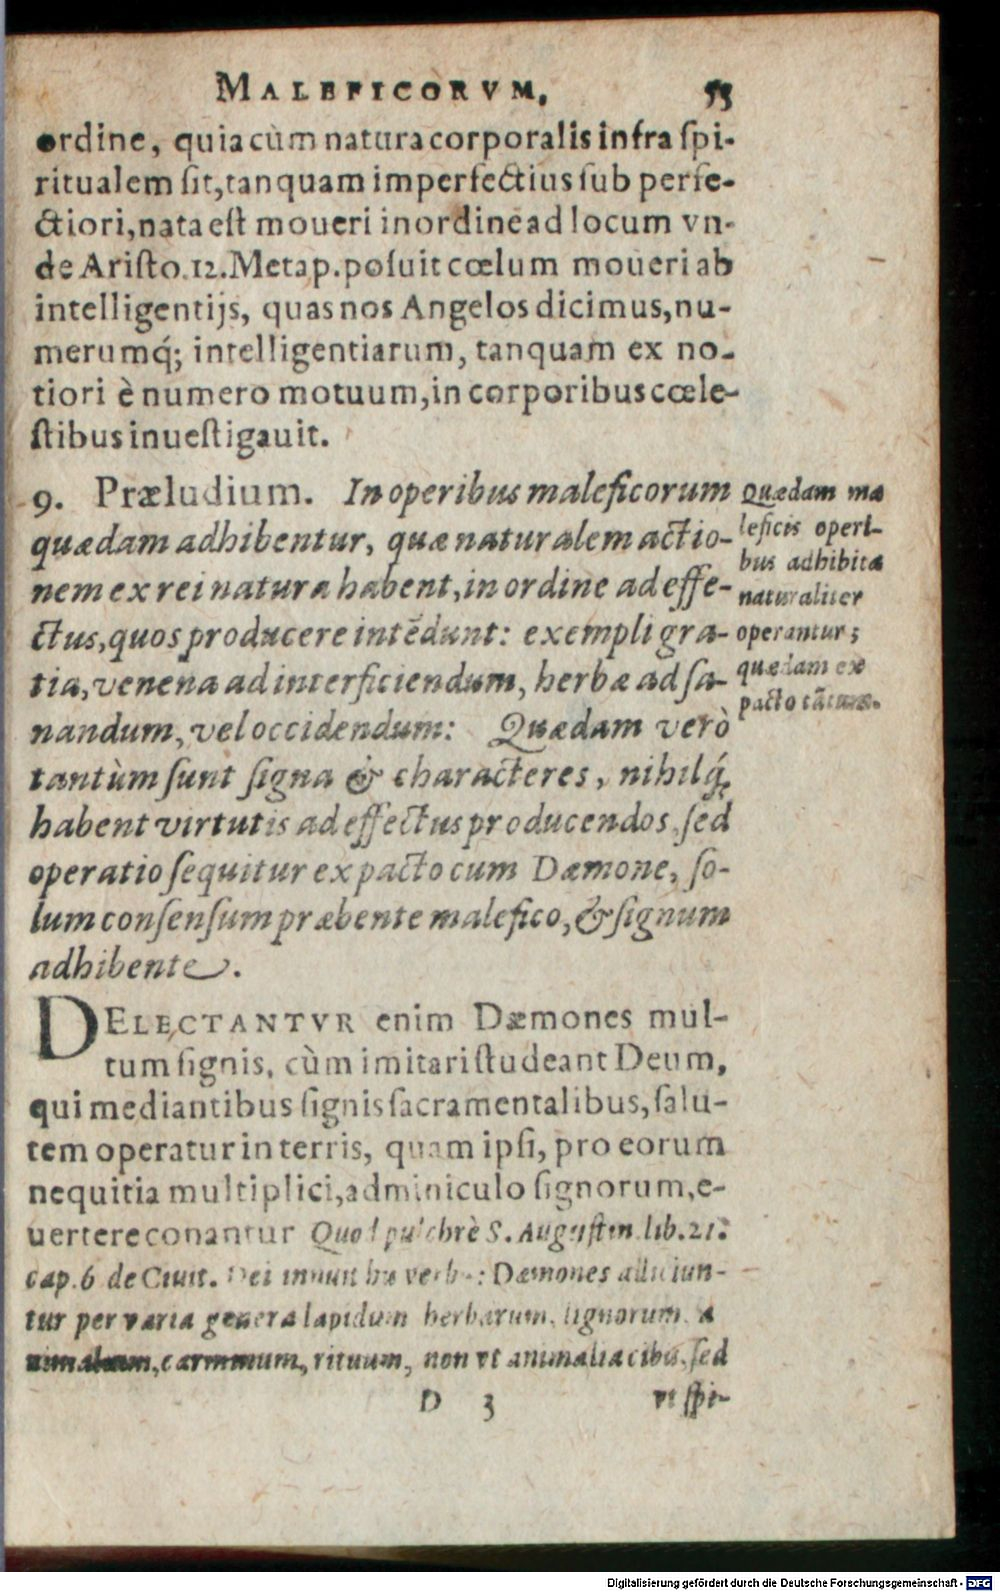 MALEFICORVM,
ordine, quia cùm natura corporalis infra ſpi-
ritualem ſit, tanquam imperfectius ſub perfe-
ctiori, nata eſt moueri in ordine ad locum vn-
de Ariſto. 12. Metap. poſuit cœlum moueri ab
intelligentijs, quas nos Angelos dicimus, nu-
merumq́; intelligentiarum, tanquam ex no-
tiori è numero motuum, in corporibus cœle-
ſtibus inueſtigauit.
9. Præludium. In operibus maleficorum
quædam adhibentur, quæ naturalem actio-
nem ex rei natura habent, in ordine ad effe-
ctus, quos producere intēdunt: exempli gra-
tia, venena ad interficiendum, herbæ ad ſa-
nandum, vel occidendum: Quædam verò
tantùm ſunt ſigna & characteres, nihilq́ꝫ
habent virtutis ad effectus producendos, ſed
operatio ſequitur ex pacto cum Dæmone, ſo-
lum conſenſum præbente malefico, & ſignum
adhibente.
Quædam ma
leficis operi-
bus adhibita
naturaliter
operantur;
quædam ex
pacto tātum.
DELECTANTVR enim Dæmones mul-
tum ſignis, cùm imitari ſtudeant Deum,
qui mediantibus ſignis ſacramentalibus, ſalu-
tem operatur in terris, quam ipſi, pro eorum
nequitia multiplici, adminiculo ſignorum, e-
uertere conantur Quod pulchrè S. Auguſtin. lib. 21.
cap. 6 de Ciuit. Dei verb: Dæmones alliciun-
tur per varia genera lapidum herbarum, lignorum, a
nimalium, carminum, rituum, non vt animalia cibis, ſed
D 3 vt ſpi-
Digitalisierung gefördert durch die Deutsche Forschungsgemeinschaft - DFG